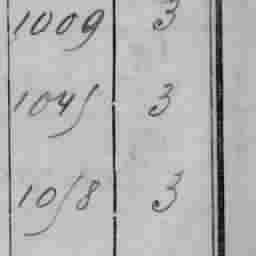 1009 3
1045 3
1058 3